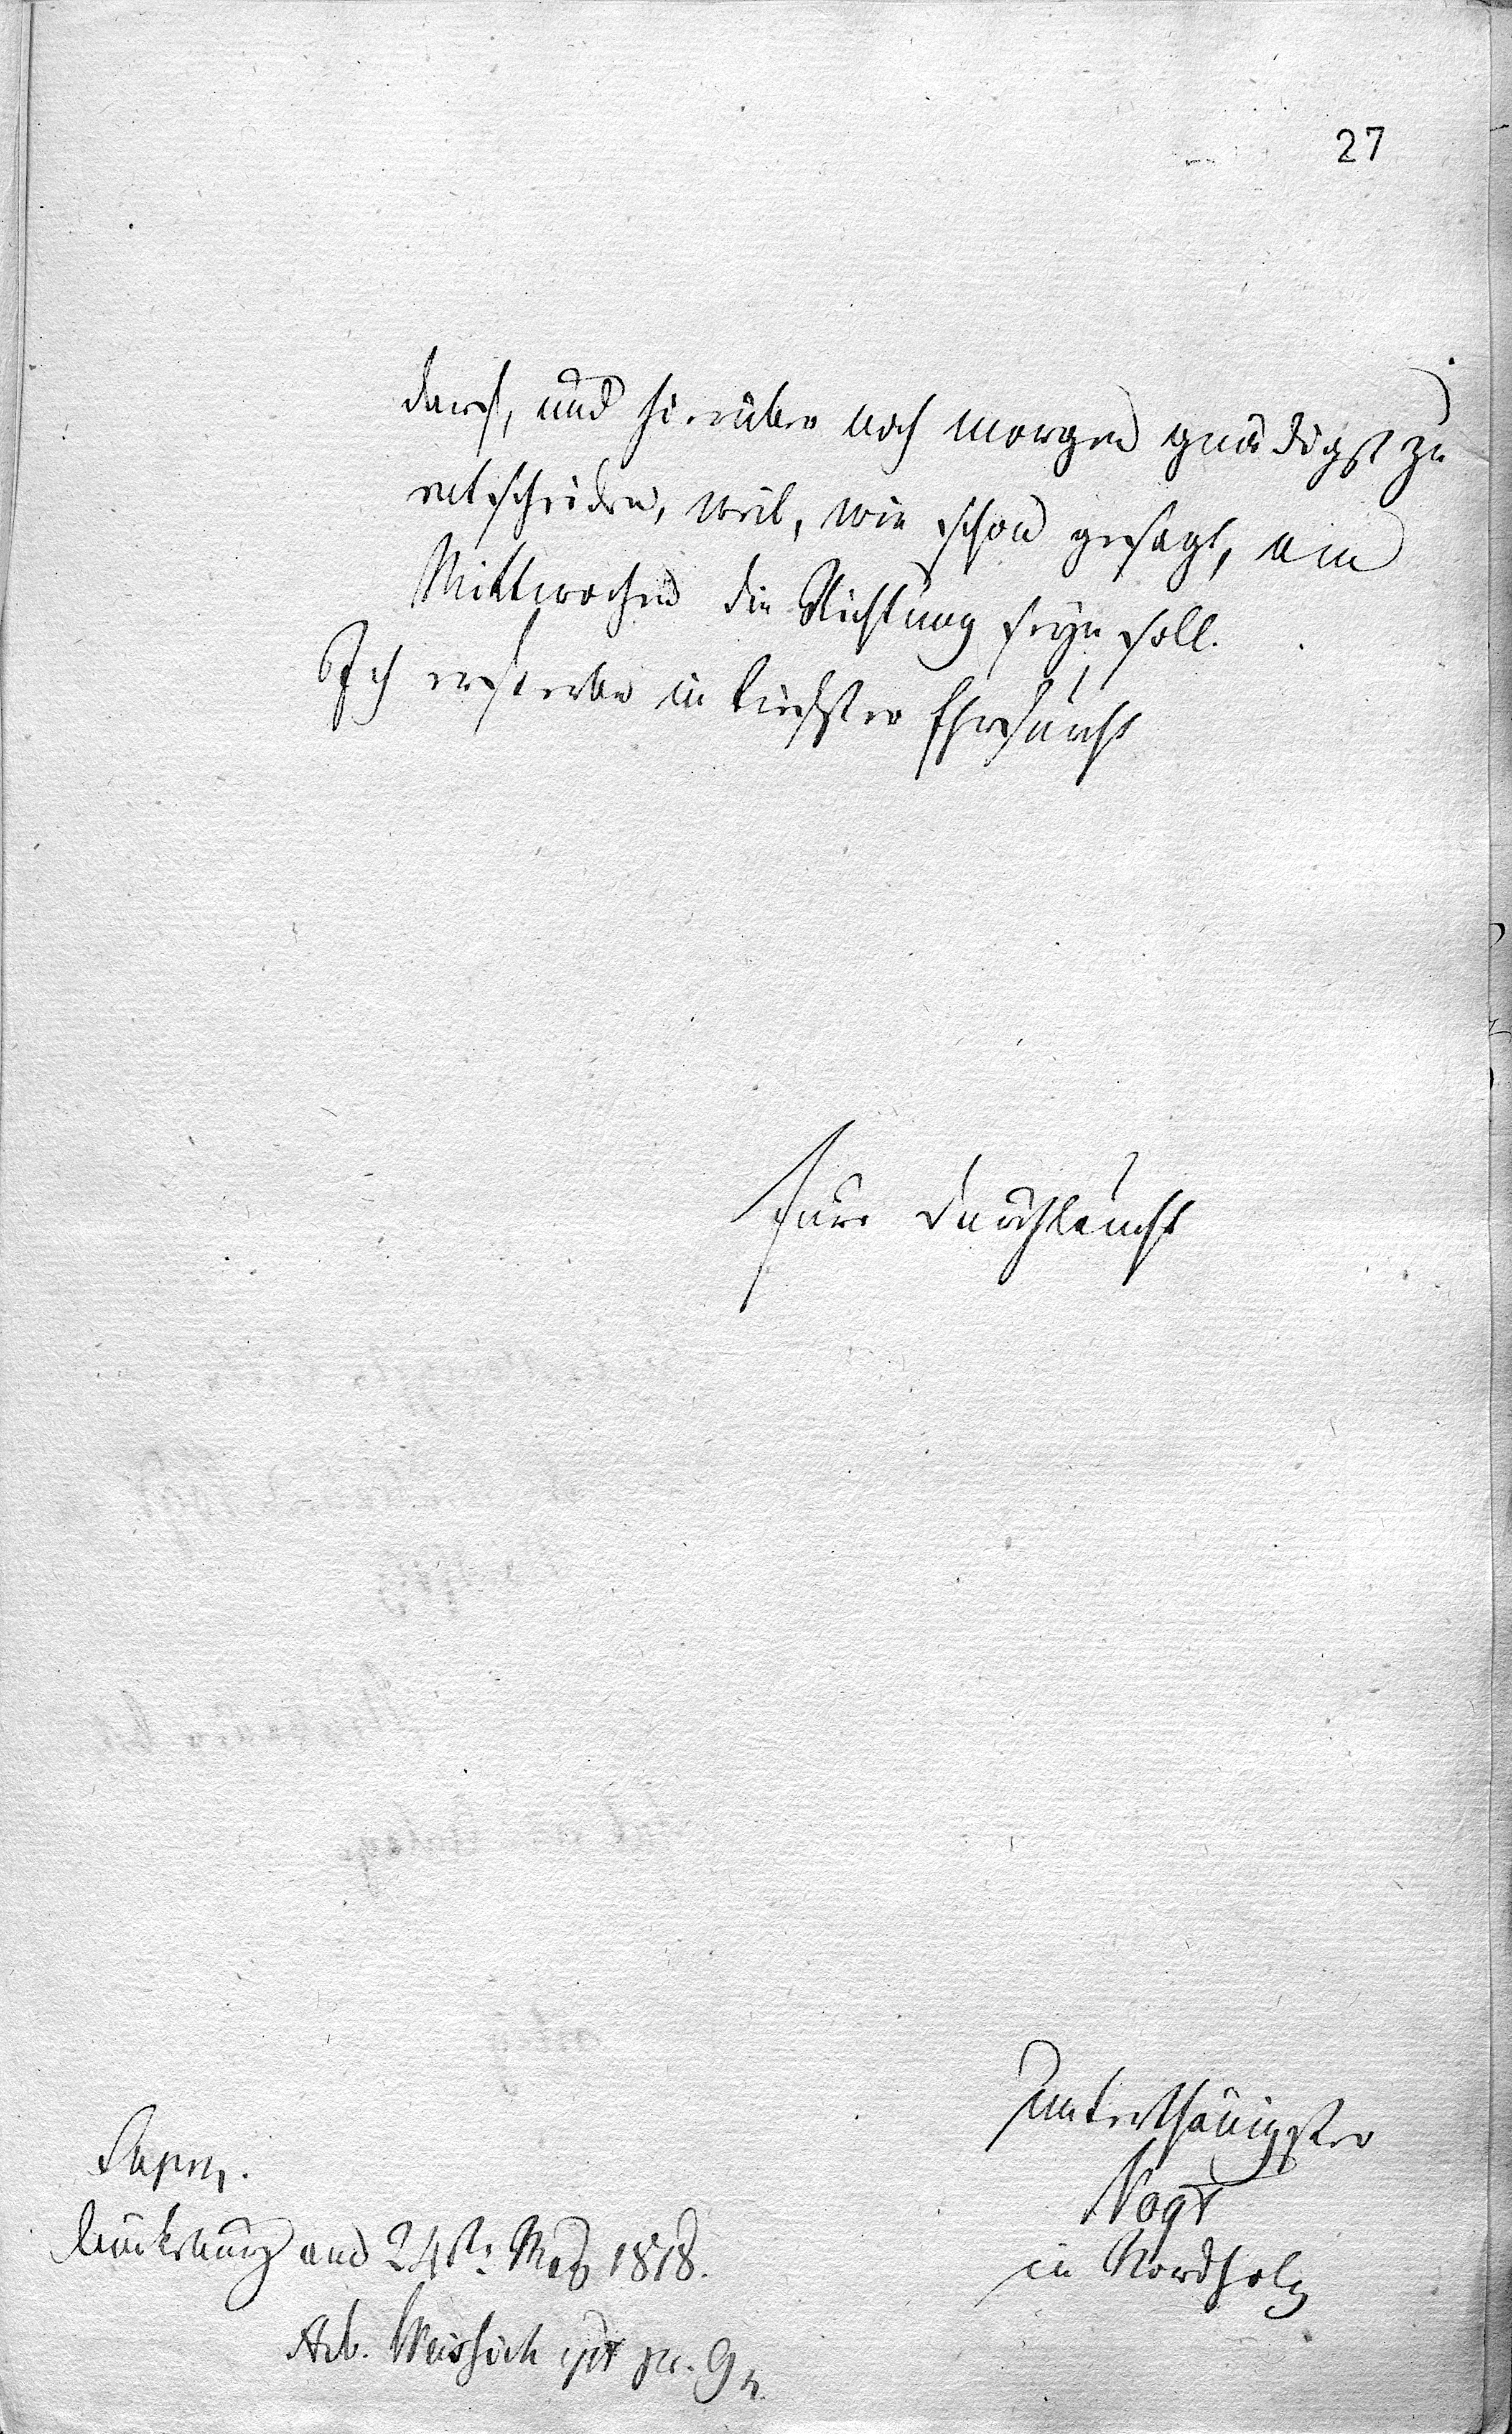 27
darf, und hierüber noch morgen gnädigst zu
entscheiden, weil, wie schon gesagt, am
Mittwochen die Richtung seyn soll.
Ich ersterbe in tiefster Ehrfurcht
Eure Durchlaucht
unterthänigster
Vogt
in Nordholz
Bückeburg am 24st: May 1818.